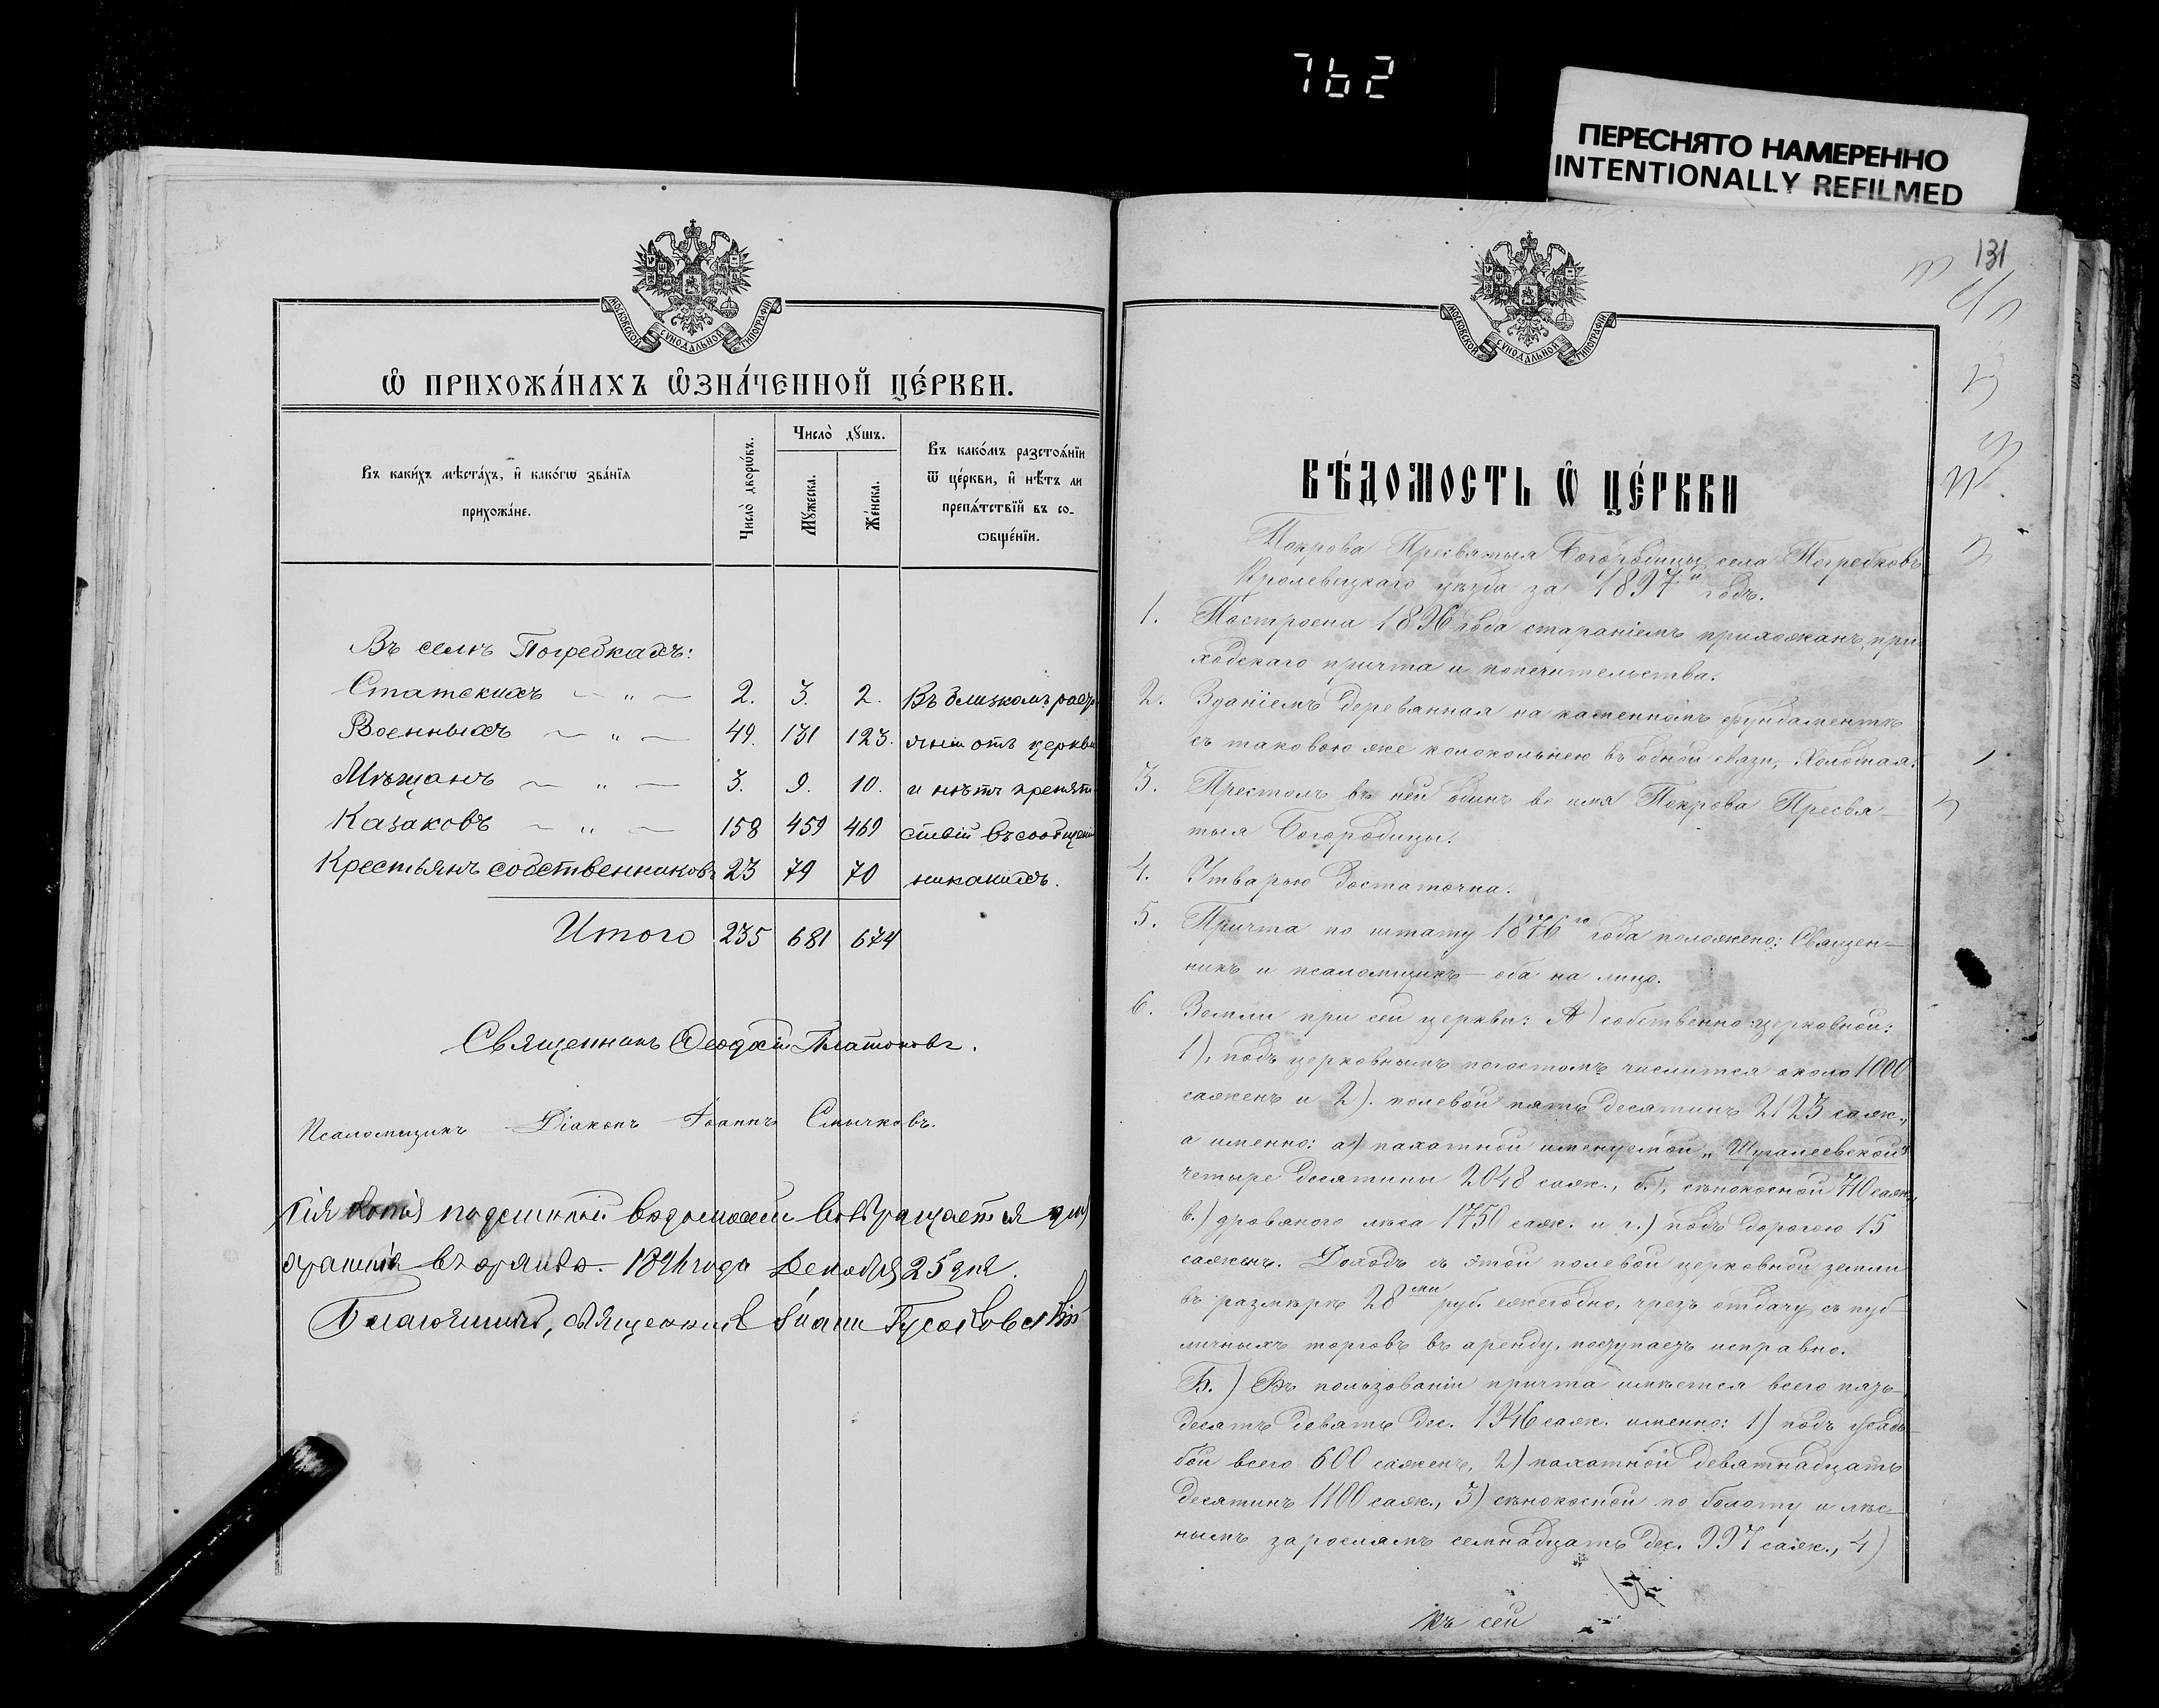 762
ПЕРЕСНЯТО НАМЕРЕННО
INTENTIONALLY REFILMED
МОСКОВСКОЙ СУНОДАЛЬНОЙ ТИПОГРАФІИ
Ѽ ПРИХОЖА́НАХЪ Ѽ҆ЗНА́ЧЕННОЙ ЦЕ́РКВИ.
Въ каки́хъ мѣста́хъ, и҆ како́гѡ зва́нїѧ
прихожа́не.
Число̀ дворѡ́въ.
Число̀ дꙋ́шъ.
Мꙋ́жеска.
Же́нска.
Въ како́мъ разстоѧ́нїи
ѿ це́ркви, и҆ нѣ́тъ ли
препѧ́тствїй въ со-
ѡбще́нїи.
Въ селѣ Погребкахъ:
Статскихъ — „ — 2. 3. 2. Въ близкомъ разсто-
Военныхъ — „ — 49. 131 123. яніи отъ церкви
Мѣщанъ — „ — 3. 9. 10. и нѣтъ препят-
Казаковъ — „ — 158 459 469 ствій въ сообщеніи
Крестьянъ собственниковъ 23 79 70 никакихъ.
Итого 235 681 674
Священникъ Ѳеодосій Платоновъ.
Псаломщикъ Діаконъ Іоаннъ Смычковъ.
Сія копія подлинной вѣдомости возвращается для
храненія въ 189 года Декабря 25 дня.
Благочинный, священникъ Іоаннъ
131
МОСКОВСКОЙ СУНОДАЛЬНОЙ ТИПОГРАФІИ
ВѢ́ДОМОСТЬ Ѽ ЦЕ́РКВИ
Покрова Пресвятыя Богородицы села Погребковъ
Кролевецкаго уѣзда за 1897й годъ.
1. Построена 1896 года стараніемъ прихожанъ, при-
ходскаго причта и попечительства.
2. Зданіемъ деревянная на каменномъ фундаментѣ
съ таковою же колокольнею въ одной связи, холодная.
3. Престолъ въ ней одинъ во имя Покрова Пресвя-
тыя Богородицы.
4. Утварью достаточна.
5. Причта по штату 1876го года положено: Священ-
никъ и псаломщикъ — оба на лицо.
6. Земли при сей церкви: А) собственно церковной:
1), подъ церковнымъ погостомъ числится около 1000
сажень и 2). полевой пять десятинъ 2123 саж.,
а именно: а) пахатной именуемой „Шугалеевской"
четыре десятины 2048 саж., б.), сѣнокосной 710 саж.,
в.) дровяного лѣса 1750 саж. и г.) подъ дорогою 15
сажень. Доходъ съ этой полевой церковной земли
въ размѣрѣ 28ми руб. ежегодно, чрезъ отдачу съ пуб-
личныхъ торговъ въ аренду, поступаетъ исправно.
Б.) Въ пользованіи причта имѣется всего пять-
десятъ девять дес. 1346 саж. именно: 1) подъ усадь-
бой всего 600 сажень, 2) пахатной девятнадцать
десятинъ 1100 саж., 3) сѣнокосной по болоту и лѣс-
нымъ зарослямъ семнадцать дес. 997 саж., 4)
къ сей